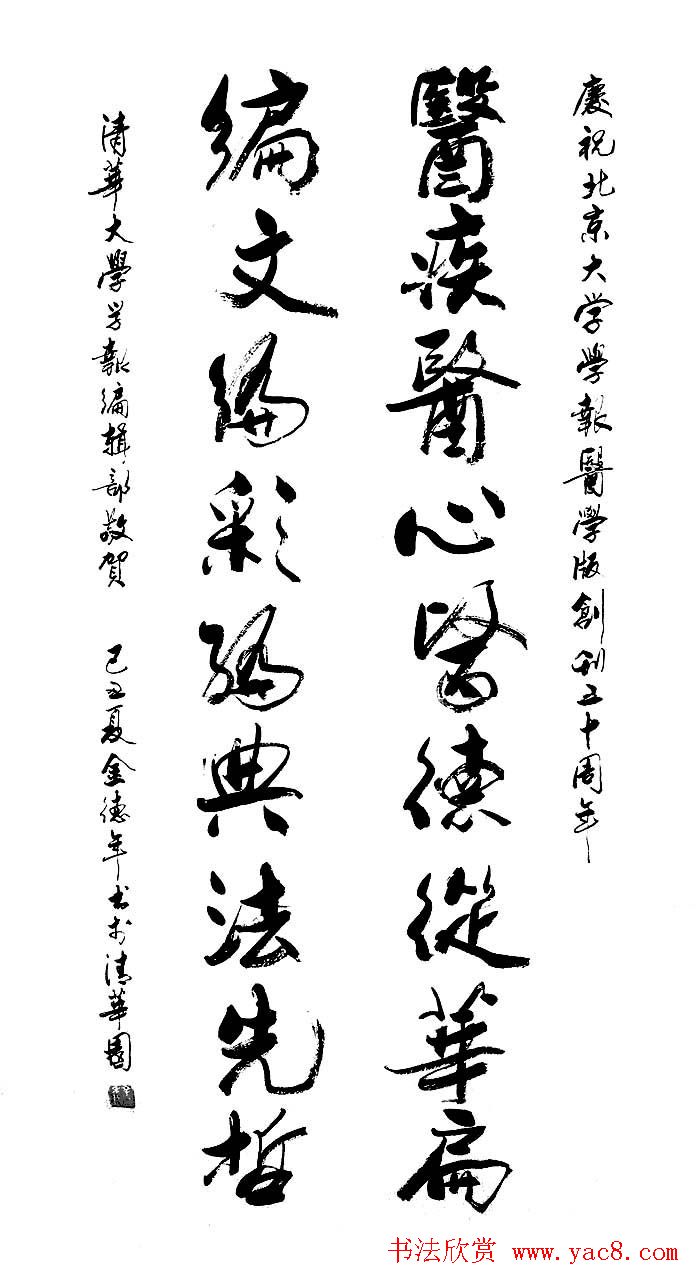 慶祝北京大学學報醫學版創刊五十周年
醫疾醫心醫德從華扁
編文編彩編典法先哲
清華大學学報編輯部敬賀 己丑夏金德年书于清華園
书法欣赏 www.yac8.com